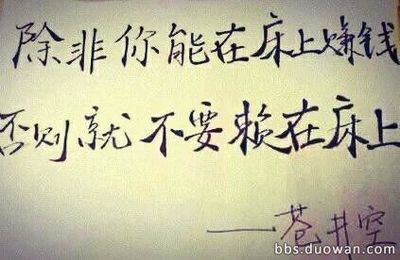 除非你能在床上赚钱
否则就不要赖在床上
——苍井空
bbs.duowan.com